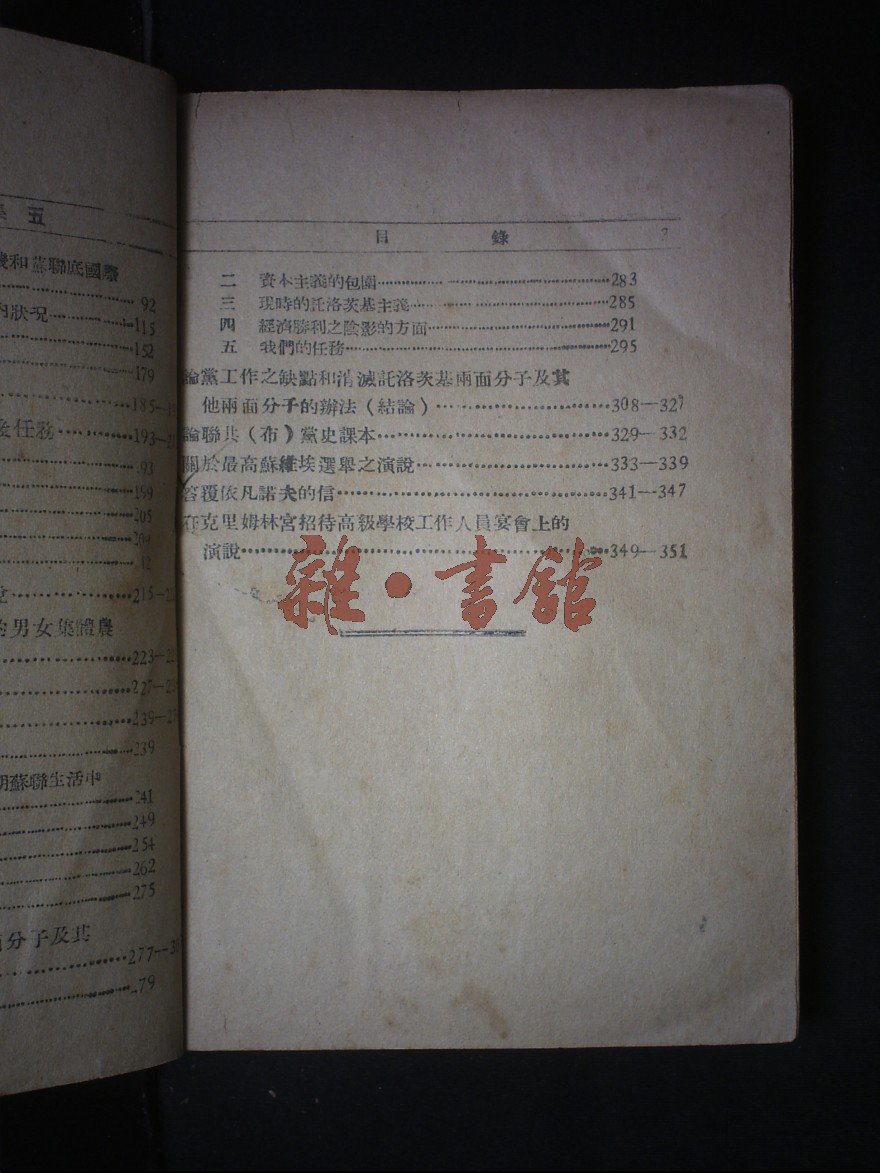 五
和蘇聯底國際
92
狀况……115
152
179
185—
任務……193—
93
199
205
209
12
215—
男女集體農
223—
227—
239—
239
期蘇聯生活中
241
249
254
262
275
分子及其
277—
79
目 錄 3
二 資本主義的包圍……283
三 現時的託洛茨基主義……285
四 經濟勝利之陰影的方面……291
五 我們的任務……295
論黨工作之缺點和消滅託洛茨基兩面分子及其
他兩面分子的辦法（結論）……308—327
論聯共（布）黨史課本……329—332
關於最高蘇維埃選舉之演說……333—339
答覆依凡諾夫的信……341—347
在克里姆林宮招待高級學校工作人員宴會上的
演說……349—351
雜·書館